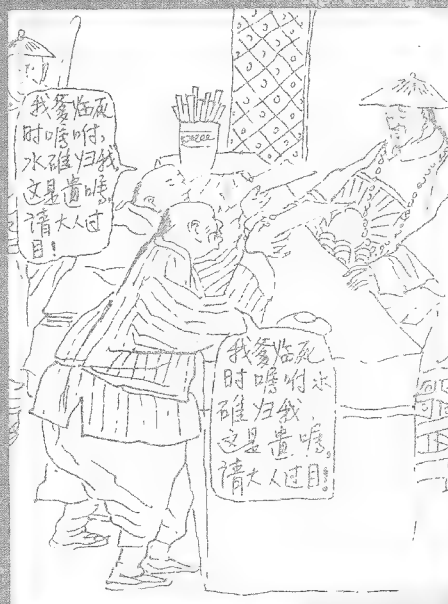 我爹临死
时嘱咐，
水碓归我，
这是遗嘱，
请大人过
目！
我爹临死
时嘱咐水
碓归我，
这是遗嘱，
请大人过目！